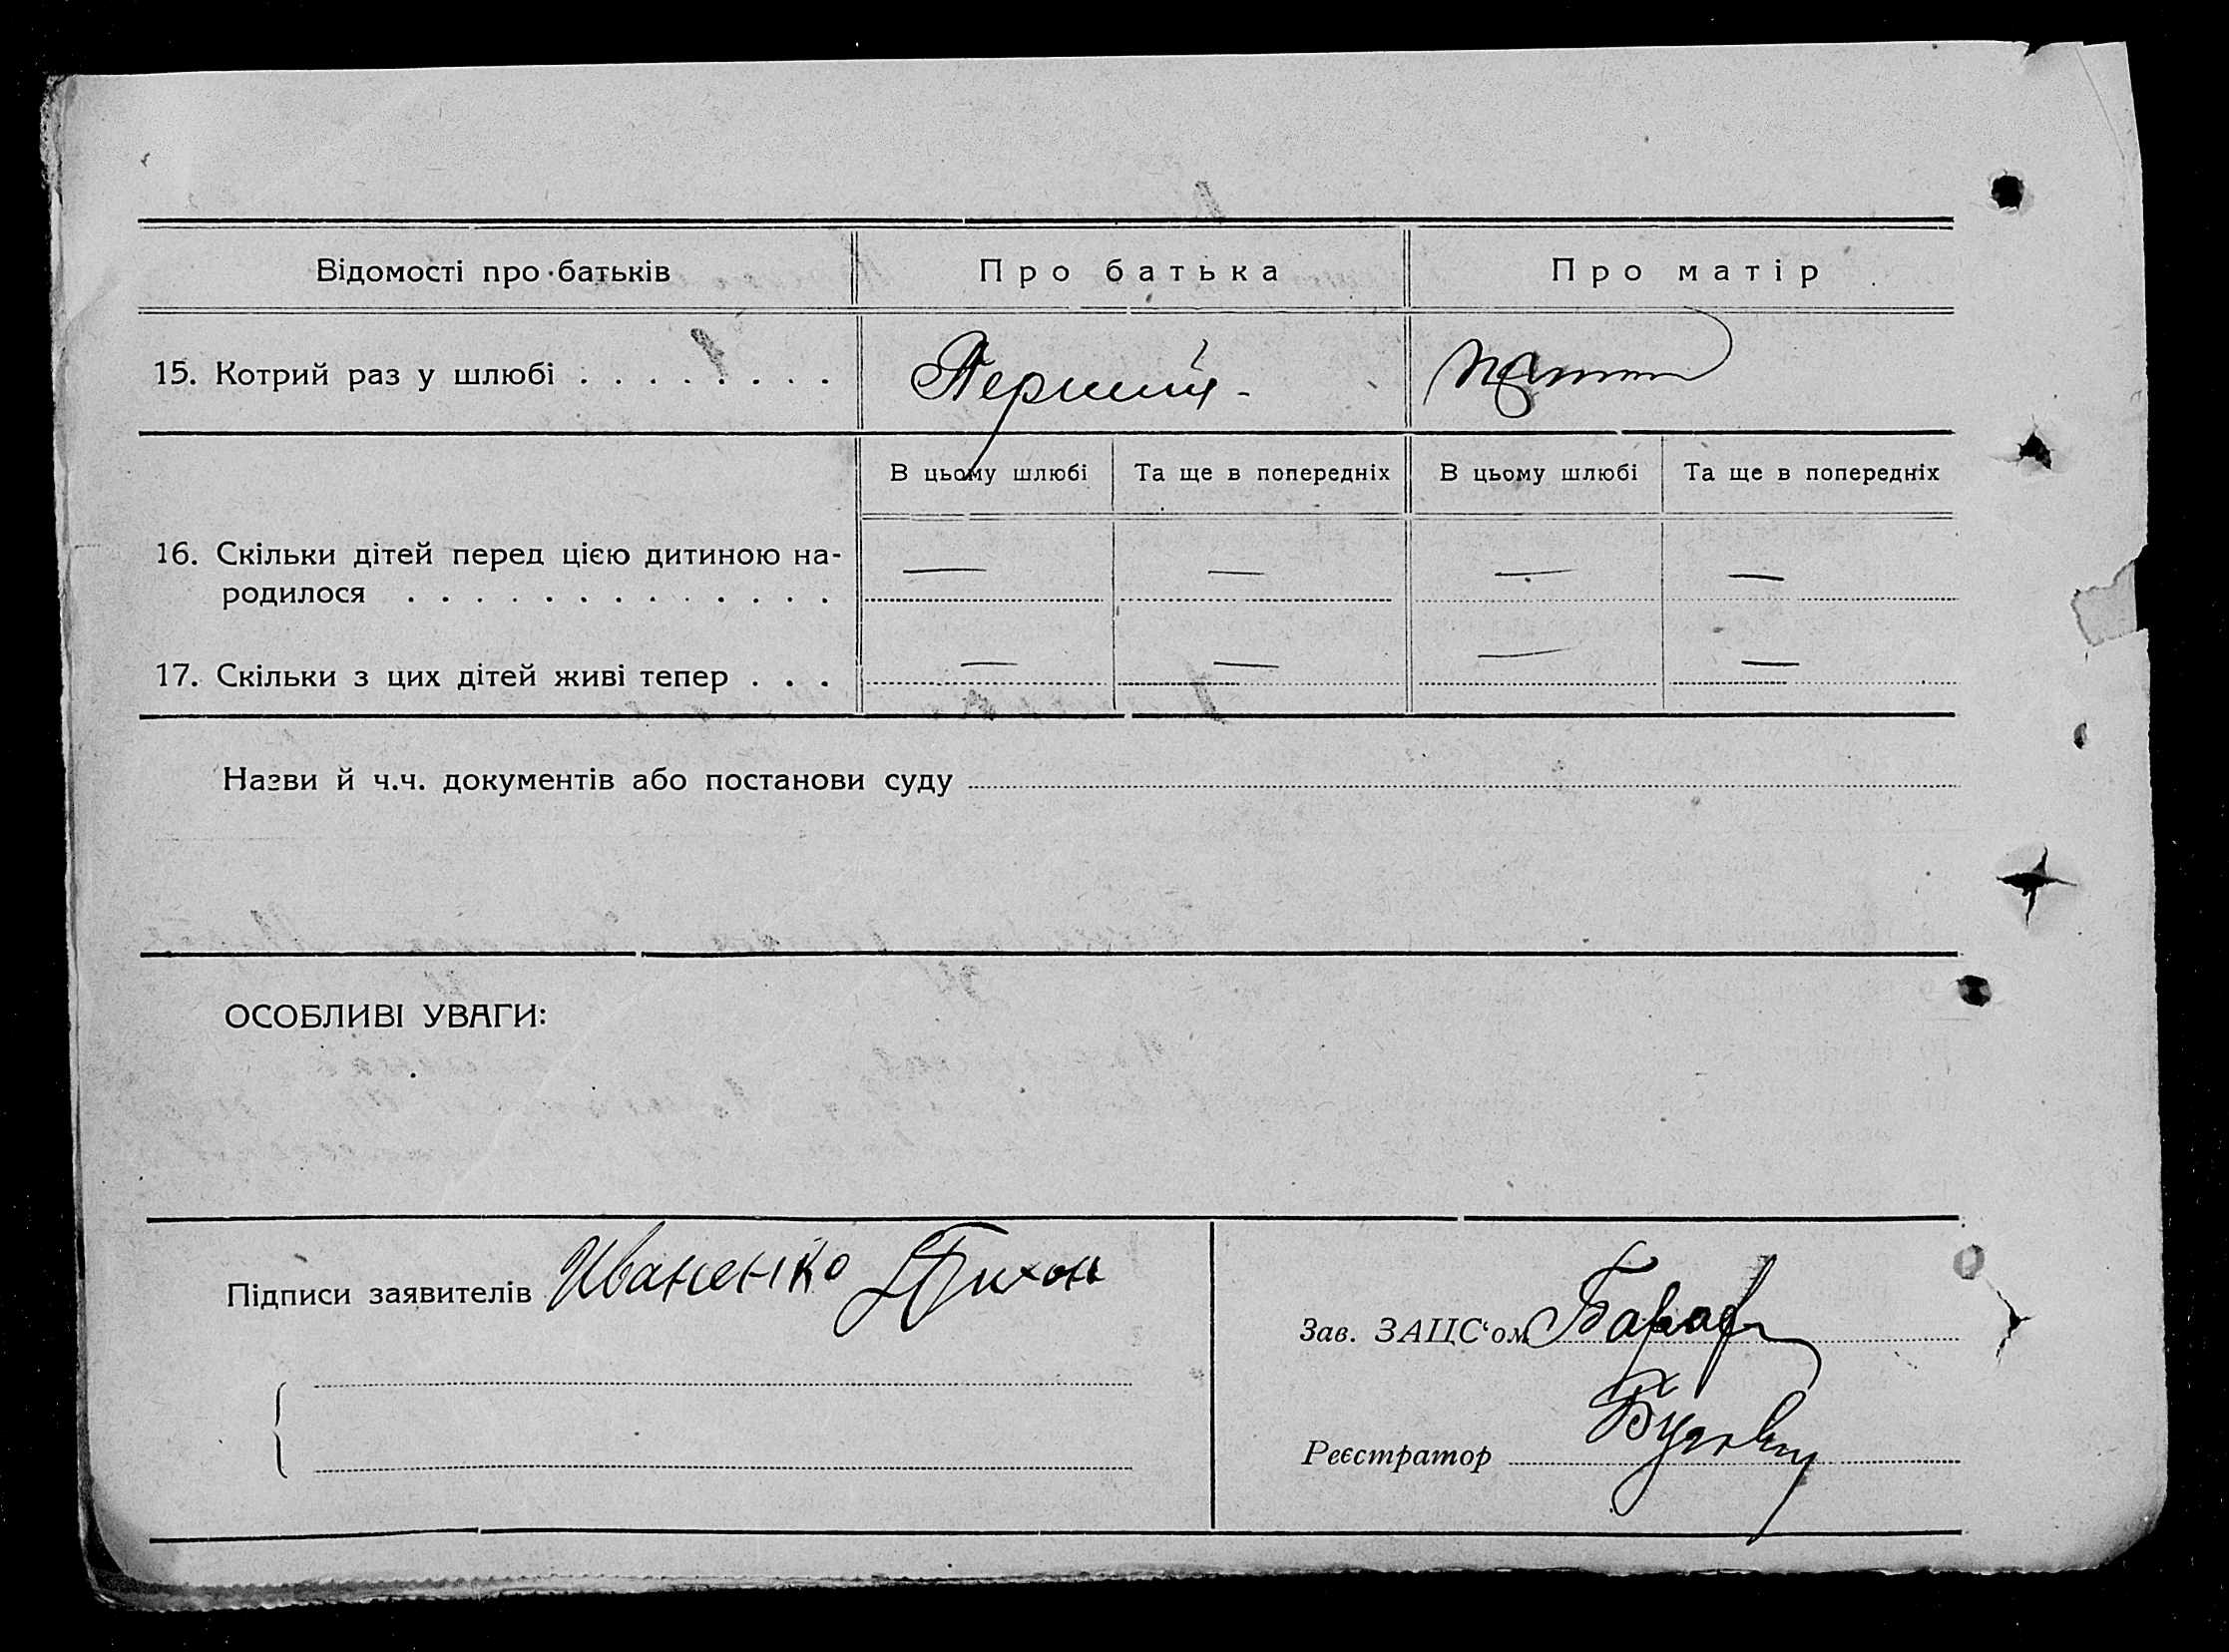 Відомості про батьків Про батька Про матір
15. Котрий раз у шлюбі . . . . . . . . Перший -
В цьому шлюбі Та ще в попередніх В цьому шлюбі Та ще в попередніх
16. Скільки дітей перед цією дитиною на- — — — —
родилося . . . . . . . . . . . . .
17. Скільки з цих дітей живі тепер . . . — — — —
Назви й ч.ч. документів або постанови суду
ОСОБЛИВІ УВАГИ:
Підписи заявителів Иваненко Тихон
Зав. ЗАЦС‘ом
Реєстратор